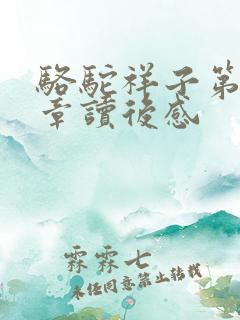 駱駝祥子第
章讀後感
霖霖七
未经同意禁止转载